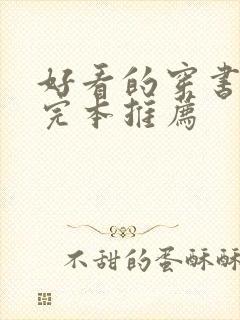 好看的穿书
完本推荐
不甜的蛋酥酥